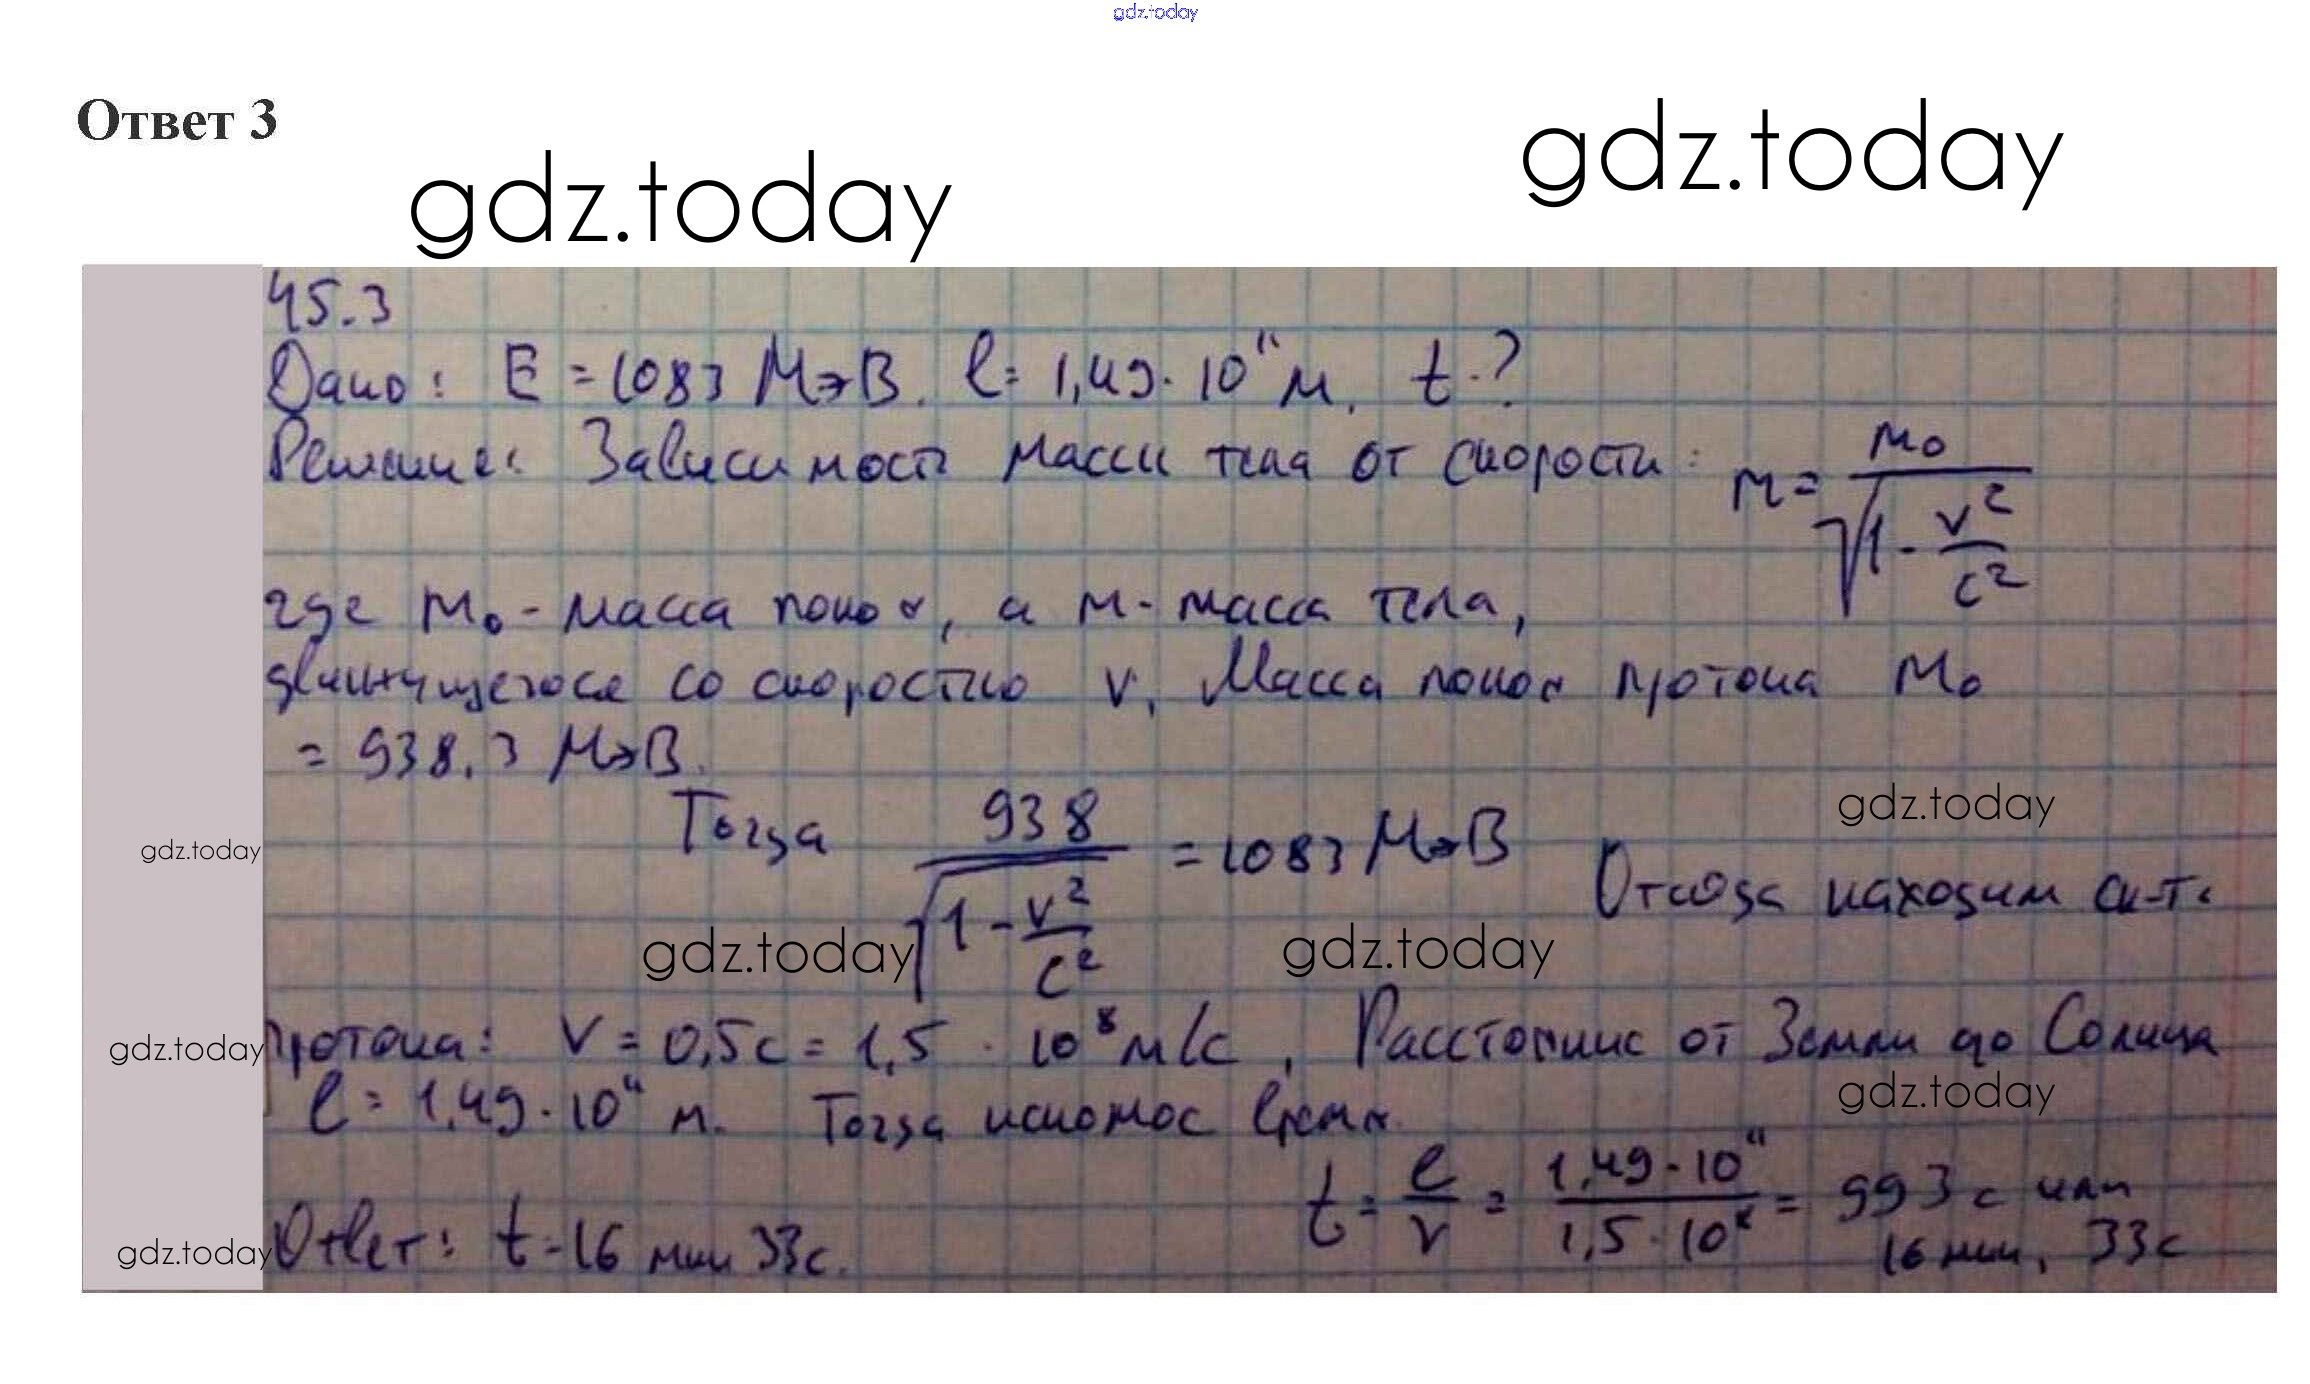 gdz.today
Ответ 3
gdz.today
gdz.today
45.3
Дано: E = 1083 МэВ. l = 1,49·10¹¹ м, t-?
Решение: Зависимость массы тела от скорости: m = m₀ / √(1 - v²/c²)
где m₀ - масса покоя, а m - масса тела,
движущегося со скоростью v. Масса покоя протона m₀
= 938.3 МэВ.
gdz.today
Тогда 938 / √(1 - v²/c²) = 1083 МэВ Отсюда находим ск-ть
gdz.today
gdz.today
gdz.today
протона: v = 0,5c = 1,5 · 10⁸ м/с, Расстояние от Земли до Солнца
gdz.today
l = 1,49·10¹¹ м. Тогда искомое время
gdz.today
t = l/v = 1,49·10¹¹ / 1,5·10⁸ = 993 с или
16 мин, 33с
Ответ: t = 16 мин 33с.
gdz.today